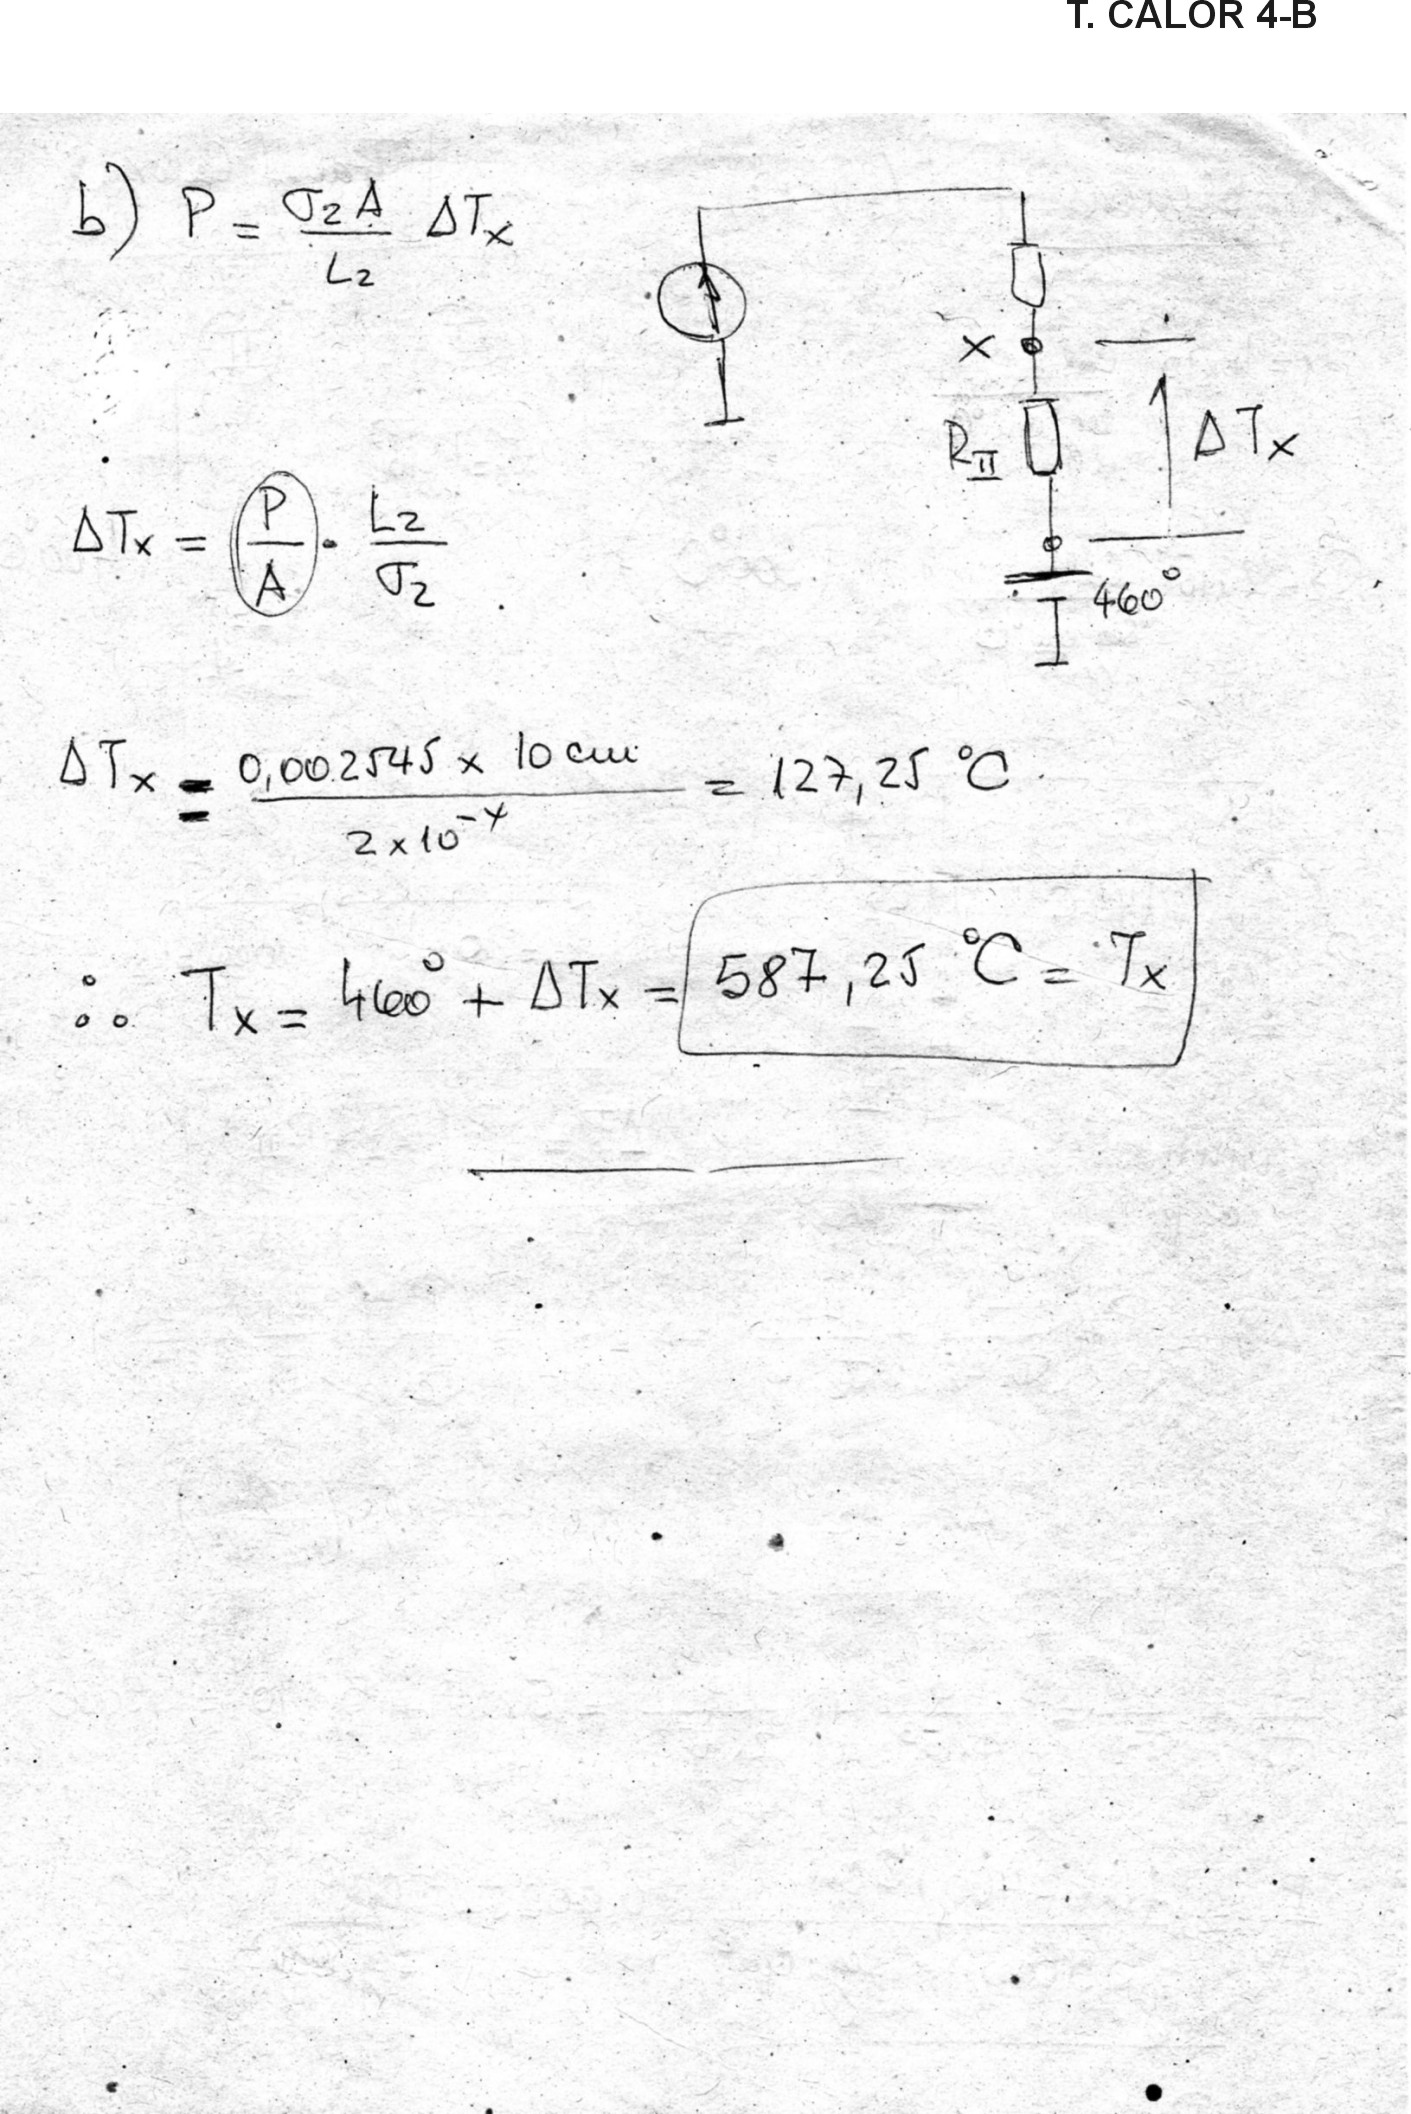 T. CALOR 4-B
b) P = σ₂A / L₂ ΔTx
x
R_II
ΔTx
460°
ΔTx = P/A · L₂/σ₂
ΔTx = 0,002545 x 10 cm / 2 x 10⁻⁴ = 127,25 °C
∴ Tx = 460° + ΔTx = 587,25 °C = Tx